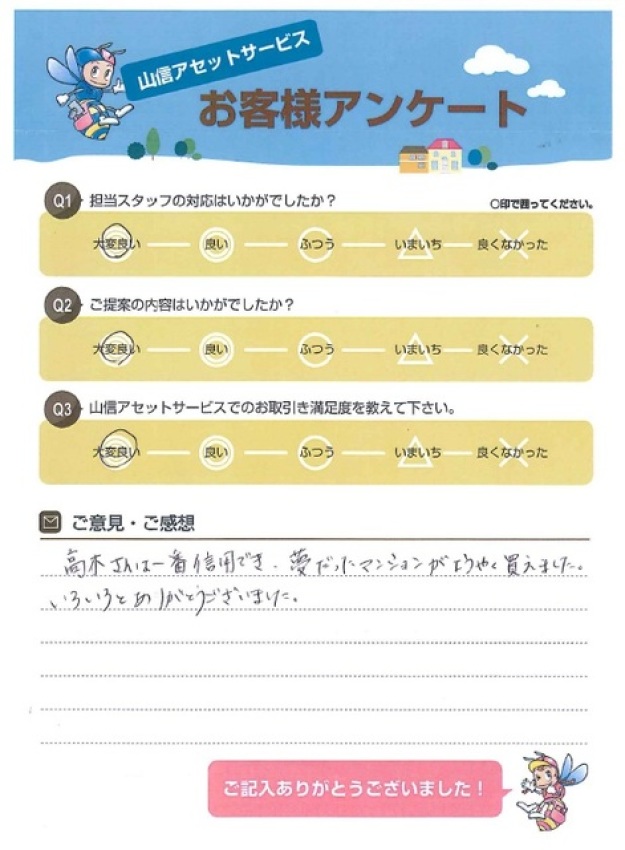 山信アセットサービス
お客様アンケート
Q1 担当スタッフの対応はいかがでしたか？
○印で囲ってください。
大変良い 良い ふつう いまいち 良くなかった
Q2 ご提案の内容はいかがでしたか？
大変良い 良い ふつう いまいち 良くなかった
Q3 山信アセットサービスでのお取引き満足度を教えて下さい。
大変良い 良い ふつう いまいち 良くなかった
ご意見・ご感想
高木さんは一番信用でき、夢だったマンションがようやく買えました。
いろいろとありがとうございました。
ご記入ありがとうございました！